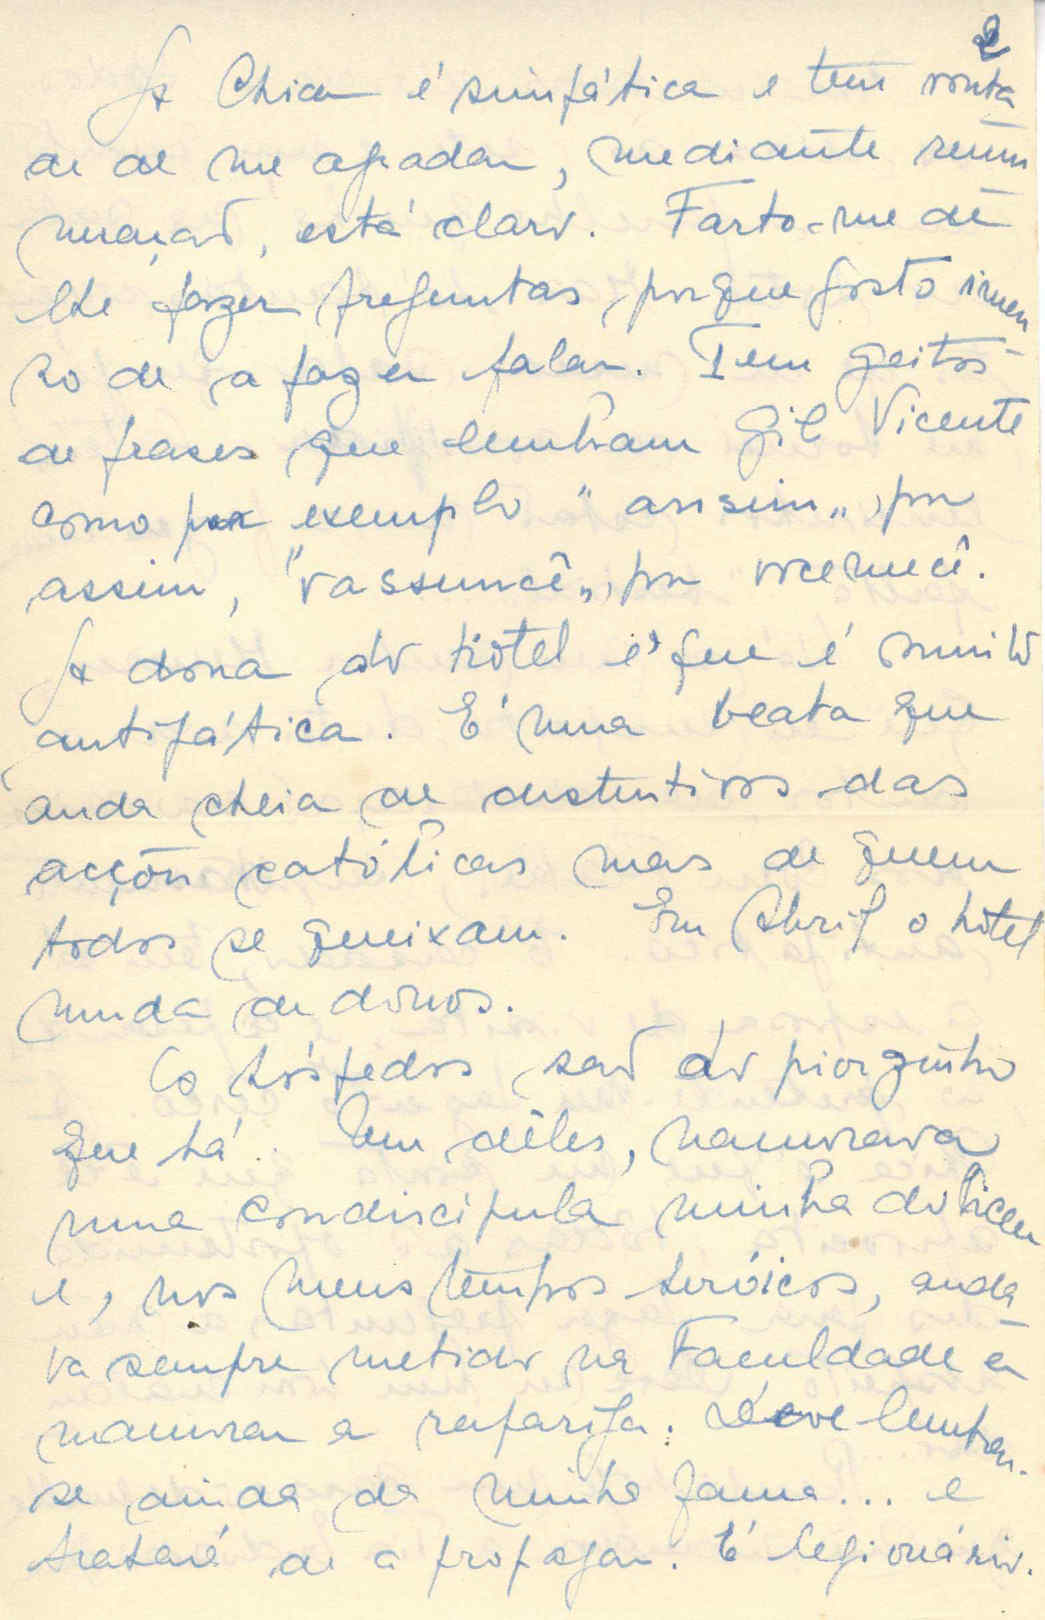 2
A Chica é simpática e tem vonta
de de me agradar, mediante remu
neração, está claro. Farto-me de
lhe fazer preguntas, porque gosto imen
so de a fazer falar. Tem geitos
de frases que lembram Gil Vicente
como por exemplo "ansim", por
assim, "vassuncê", por vocemecê.
A dona do hotel é que é muito
antipática. É uma beata que
anda cheia de distintivos das
acções católicas mas de quem
todos se queixam. Em Abril o hotel
muda de donos.
Os hóspedos são do piorzinho
que há. Um dêles, namorava
uma condiscípula minha do liceu
e, nos meus tempos heróicos, anda
va sempre metido na Faculdade a
namorar a rapariga. Deve lembrar-
se ainda da minha fama... e
tratará de a propagar. É legionário.